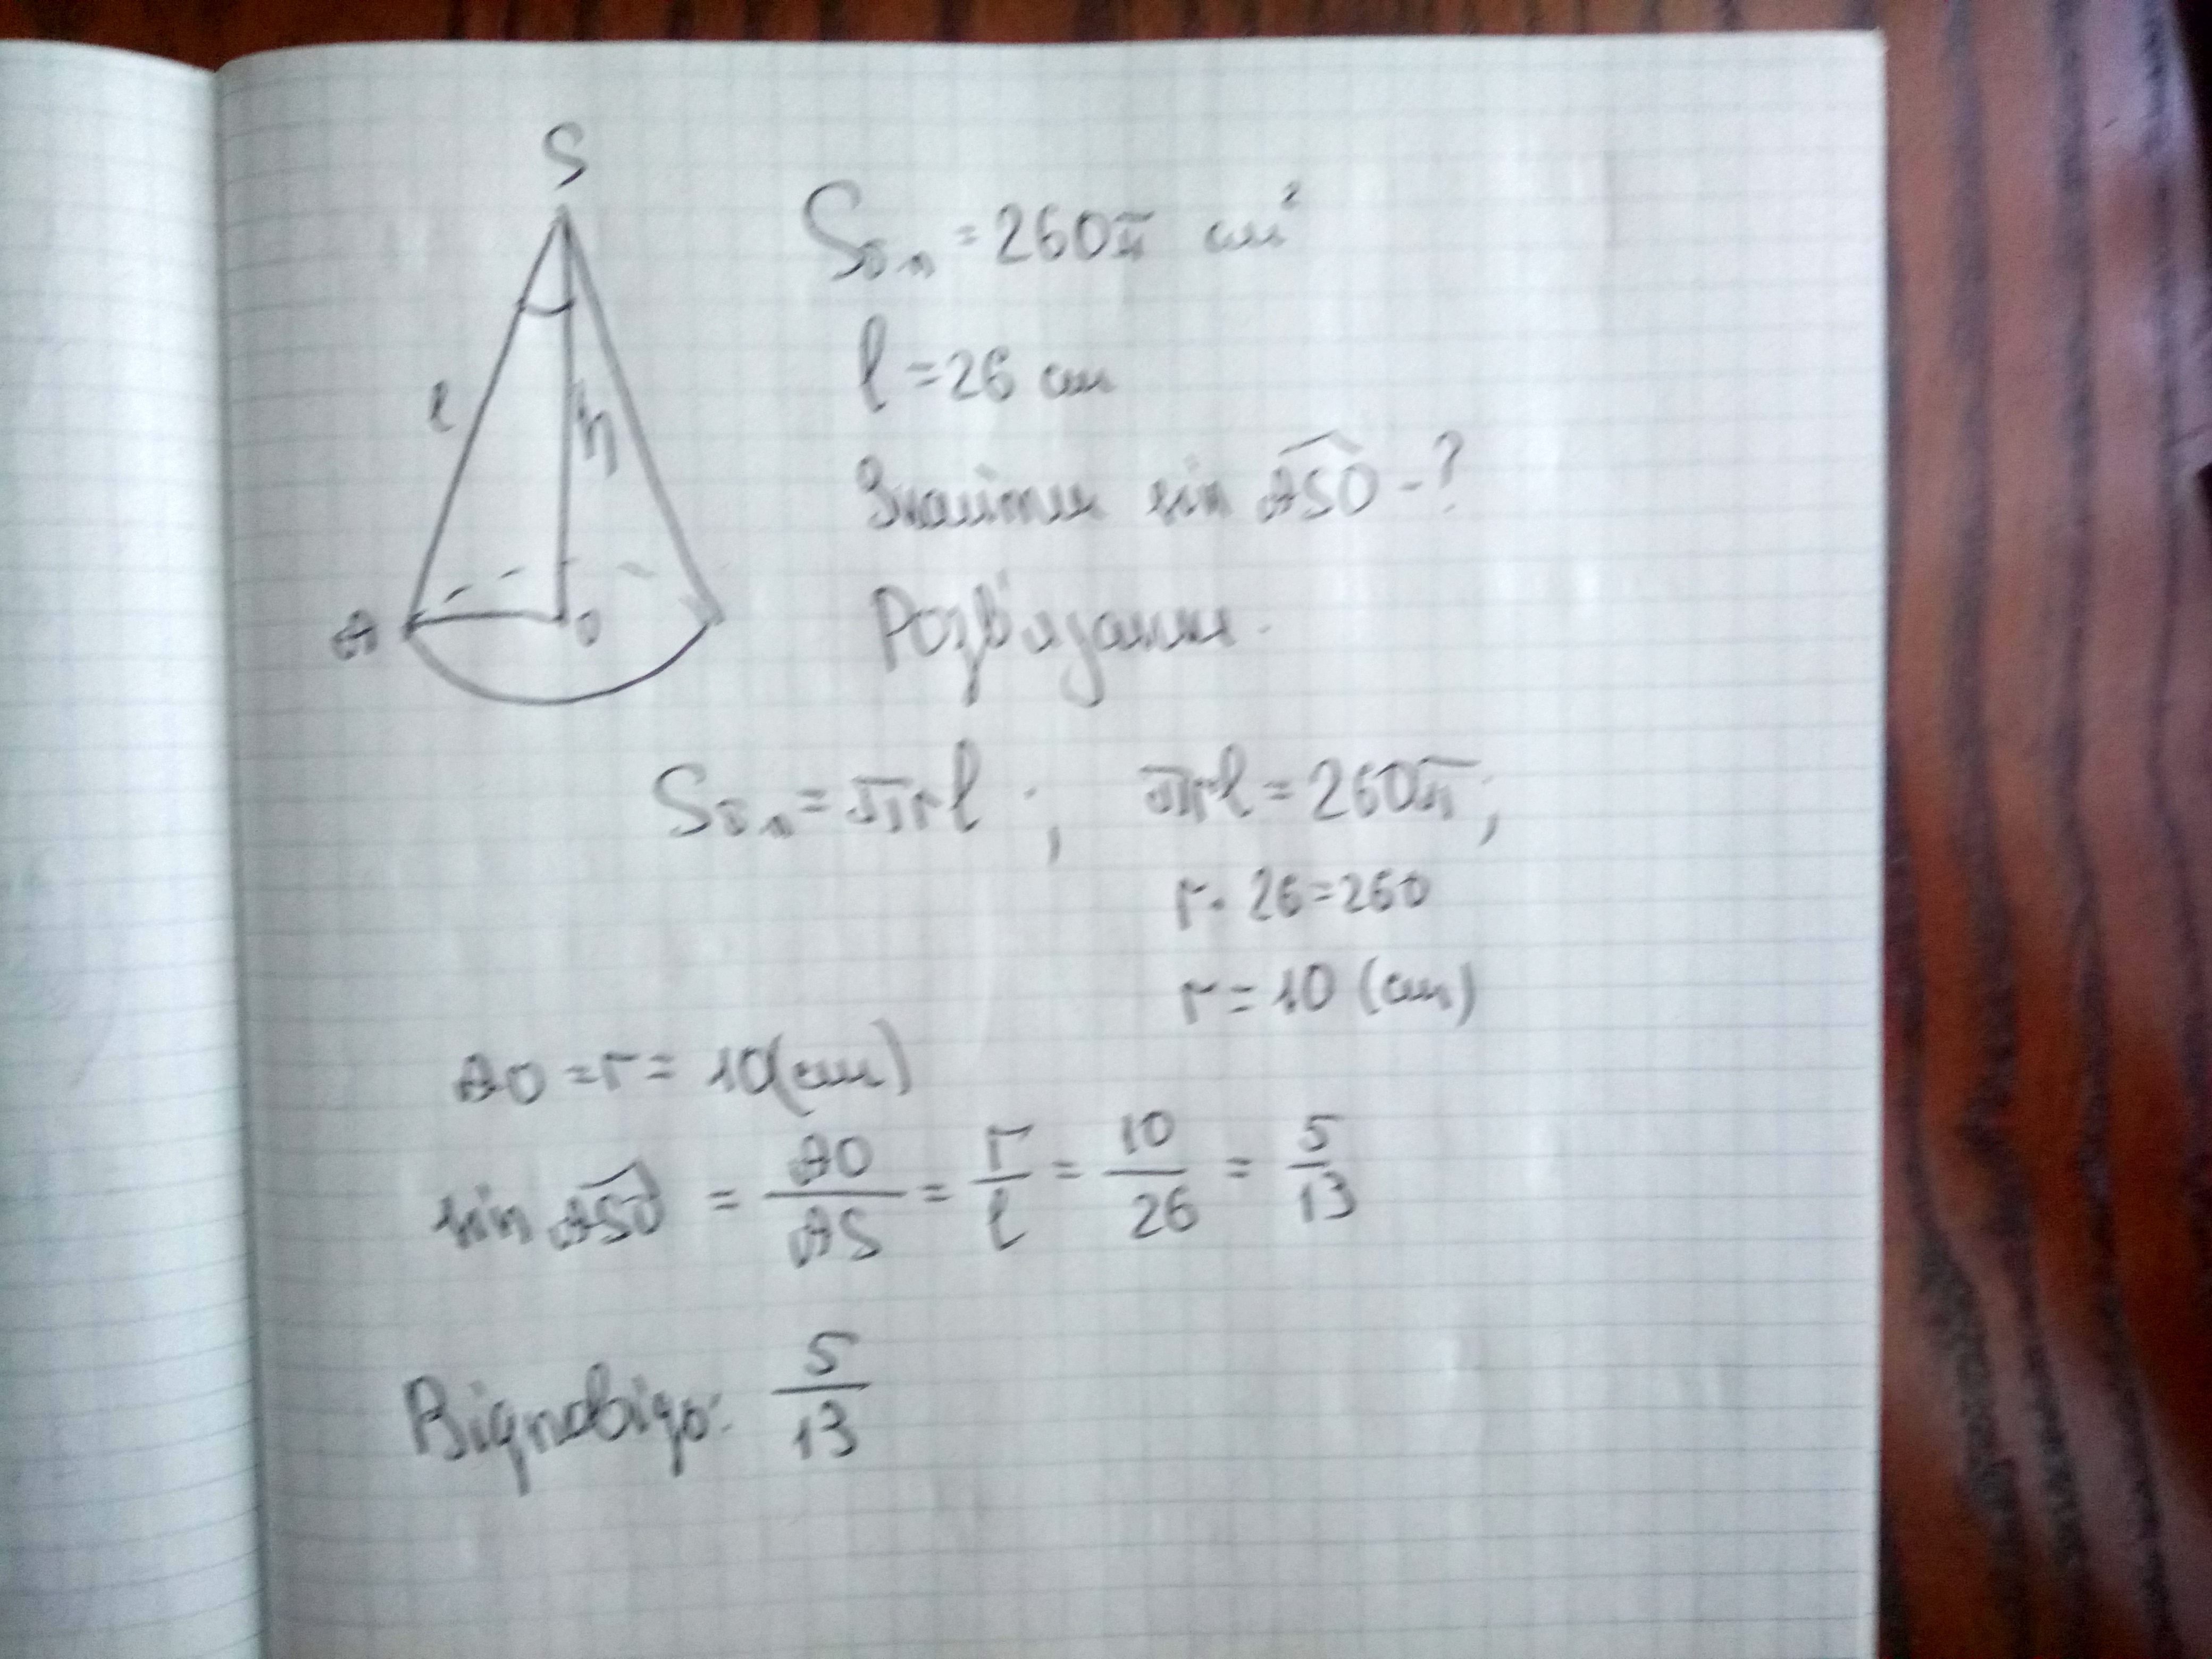 S
Sбп = 260π см²
l = 26 см
l
h
Знайти sin ASO - ?
A
O
Розв'язання.
Sбп = πrl ; πrl = 260π;
r · 26 = 260
r = 10 (см)
AO = r = 10(см)
sin ASO = AO/AS = r/l = 10/26 = 5/13
Відповідь: 5/13